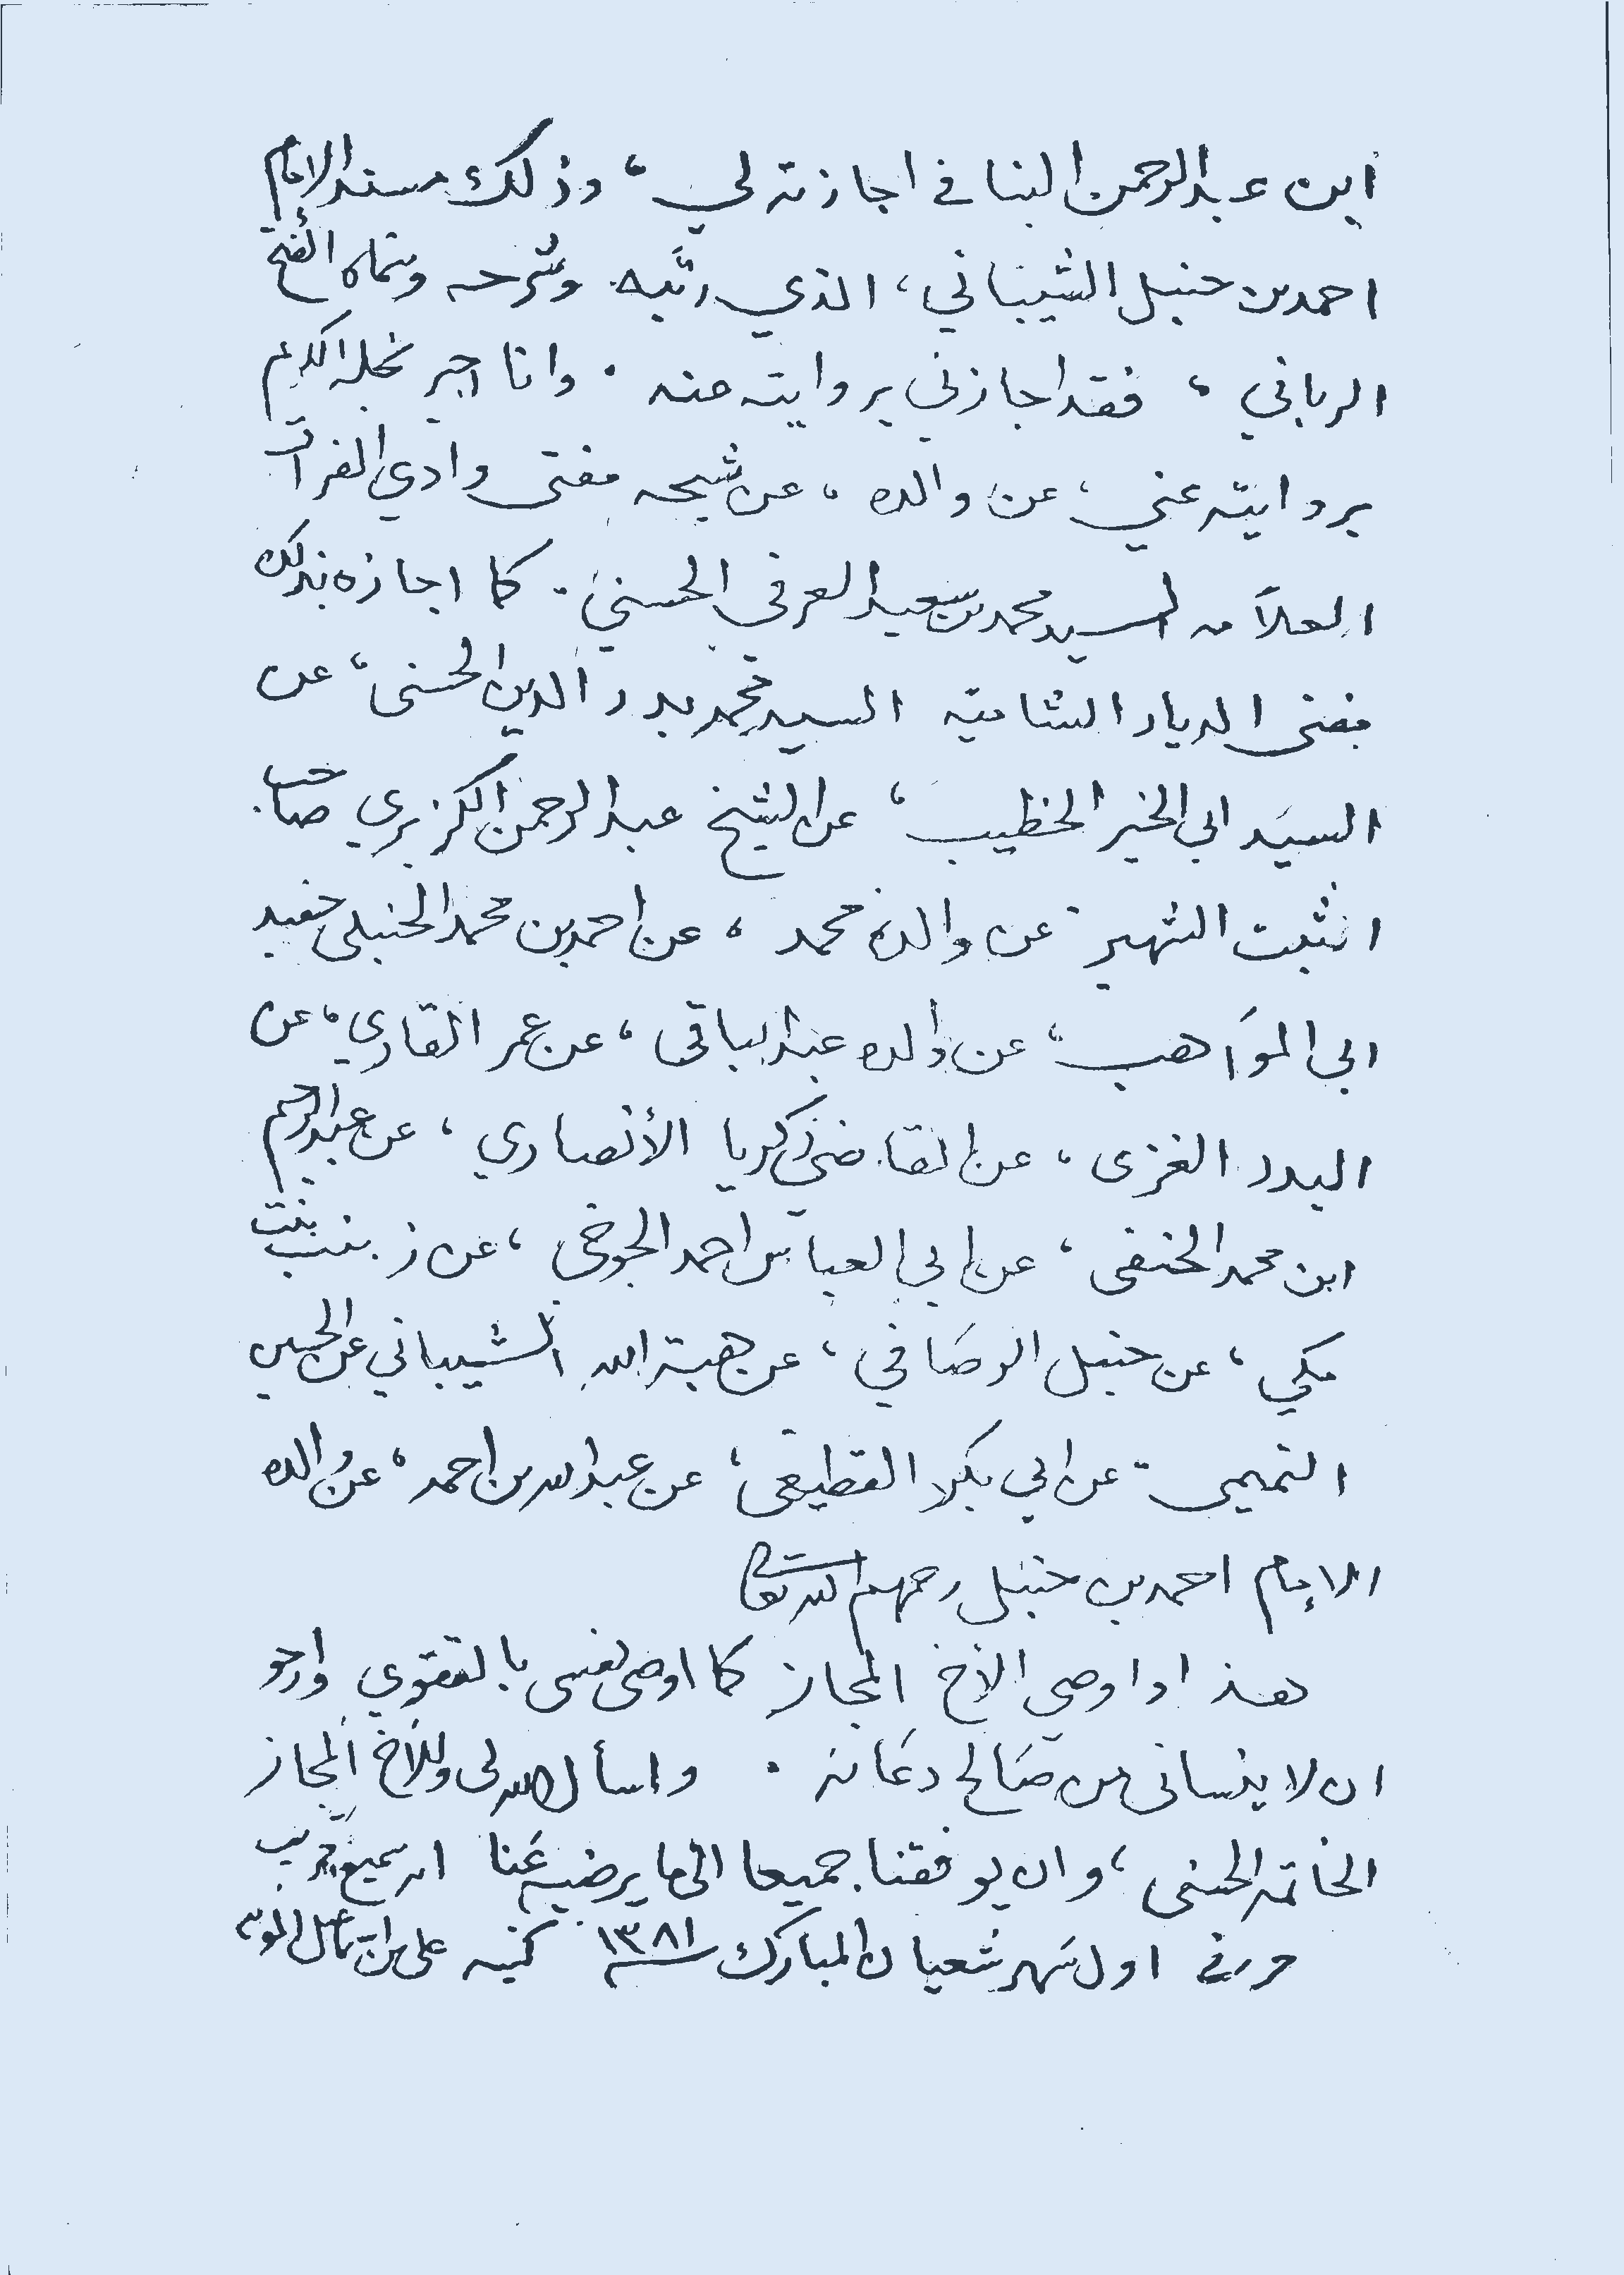 ابن عبد الرحمن البنا في اجازته لي، وذلك مسند الامام
احمد بن حنبل الشيباني، الذي رتّبه وشرحه وسماه الفتح
الرباني، فقد اجازني بروايته منه. وانا اجيز نجله الكريم
بروايته عني، عن والده، عن شيخه مفتي وادي الفرات
العلاّمه السيد محمد بن سعيد العرفي الحسني. كما اجازه بذلك
مفتى الديار الشامية السيد محمد بدر الدين الحسنى، عن
السيد ابي الخير الخطيب، عن الشيخ عبد الرحمن الكزبري صاحب
الثبت الشهير عن والده محمد، عن احمد بن محمد الحنبلى حفيد
ابى المواهب، عن والده عبد الباقى، عن عمر القاري، عن
البدر الغزى، عن القاضي زكريا الأنصاري، عن عبد الرحيم
ابن محمد الحنفى، عن ابي العباس احمد الجوخى، عن زينب بنت
مكي، عن حنبل الرصافي، عن هبة الله الشيباني عن الحسن
التميمى عن ابي بكر القطيعى، عن عبد الله بن احمد، عن والده
الإمام احمد بن حنبل رحمهم الله تعالى
هذا واوصي الأخ المجاز كما اوصى نفسى بالتقوى وارجو
ان لا ينسانى من صالح دعائه. واسأل الله لى وللأخ المجاز
الخاتمة الحسنى، وان يوفقنا جميعا الى ما يرضيه عنا انه سميع مجيب
حرر في اول شهر شعبان المبارك سنة ١٣٨١ كتبه على بن